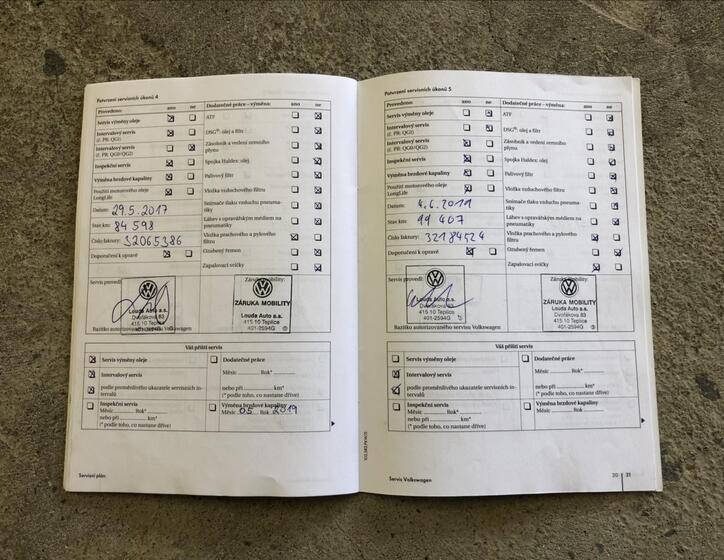 Potvrzení servisních úkonů 4
Provedeno: ano ne
Servis výměny oleje
Intervalový servis
(č. PR: QG1)
Intervalový servis
(č. PR: QG0/QG2)
Inspekční servis
Výměna brzdové kapaliny
Použití motorového oleje
LongLife
Datum: 29.5.2017
Stav km: 84 598
Číslo faktury: 32065386
Doporučení k opravě
Dodatečné práce – výměna: ano ne
ATF
DSG®: olej a filtr
Zásobník a vedení zemního
plynu
Spojka Haldex: olej
Palivový filtr
Vložka vzduchového filtru
Snímače tlaku vzduchu pneuma-
tiky
Láhev s opravářským médiem na
pneumatiku
Vložka prachového a pylového
filtru
Ozubený řemen
Zapalovací svíčky
Servis provedl:
Louda Auto a.s.
Dvořákova 83
415 10 Teplice
401-2594G
Razítko autorizovaného servisu Volkswagen
Záruka mobility:
ZÁRUKA MOBILITY
Louda Auto a.s.
Dvořákova 83
415 10 Teplice
401-2594G
Váš příští servis
Servis výměny oleje
Intervalový servis
podle proměnlivého ukazatele servisních in-
tervalů
Dodatečné práce
Měsíc Rok*
nebo při km*
(* podle toho, co nastane dříve)
Inspekční servis
Měsíc Rok*
nebo při km*
(* podle toho, co nastane dříve)
Výměna brzdové kapaliny
Měsíc 05 Rok 2019
Servisní plán
Potvrzení servisních úkonů 5
Provedeno: ano ne
Servis výměny oleje
Intervalový servis
(č. PR: QG1)
Intervalový servis
(č. PR: QG0/QG2)
Inspekční servis
Výměna brzdové kapaliny
Použití motorového oleje
LongLife
Datum:
Stav km: 99 407
Číslo faktury: 32184524
Doporučení k opravě
Dodatečné práce – výměna: ano ne
ATF
DSG®: olej a filtr
Zásobník a vedení zemního
plynu
Spojka Haldex: olej
Palivový filtr
Vložka vzduchového filtru
Snímače tlaku vzduchu pneuma-
tiky
Láhev s opravářským médiem na
pneumatiku
Vložka prachového a pylového
filtru
Ozubený řemen
Zapalovací svíčky
Servis provedl:
Louda Auto a.s.
Dvořákova 83
415 10 Teplice
401-2594G
Razítko autorizovaného servisu Volkswagen
Záruka mobility:
ZÁRUKA MOBILITY
Louda Auto a.s.
Dvořákova 83
415 10 Teplice
401-2594G
Váš příští servis
Servis výměny oleje
Intervalový servis
podle proměnlivého ukazatele servisních in-
tervalů
Dodatečné práce
Měsíc Rok*
nebo při km*
(* podle toho, co nastane dříve)
Inspekční servis
Měsíc Rok*
nebo při km*
(* podle toho, co nastane dříve)
Výměna brzdové kapaliny
Měsíc Rok
Servis Volkswagen
20 21